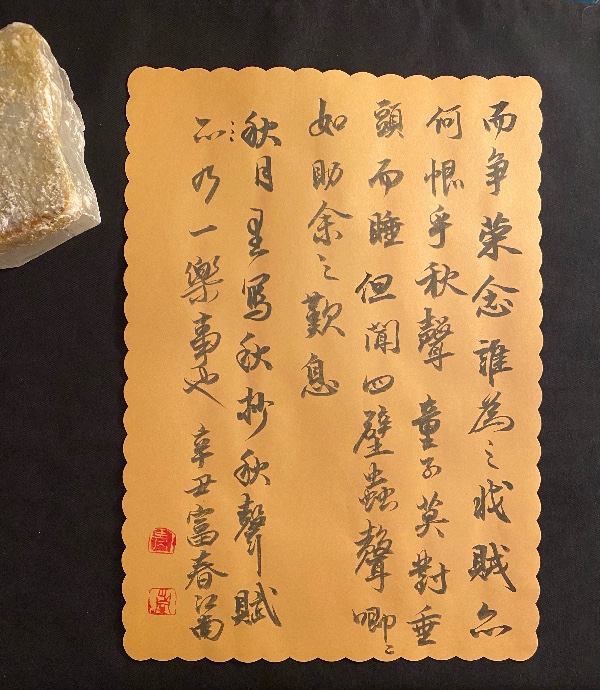 而争榮念誰為之戕賊亦
何恨乎秋聲童子莫對垂
頭而睡但聞四壁蟲聲唧〻
如助余之歎息
秋月里寫秋抄秋聲賦
亦乃一樂事也 辛丑富春